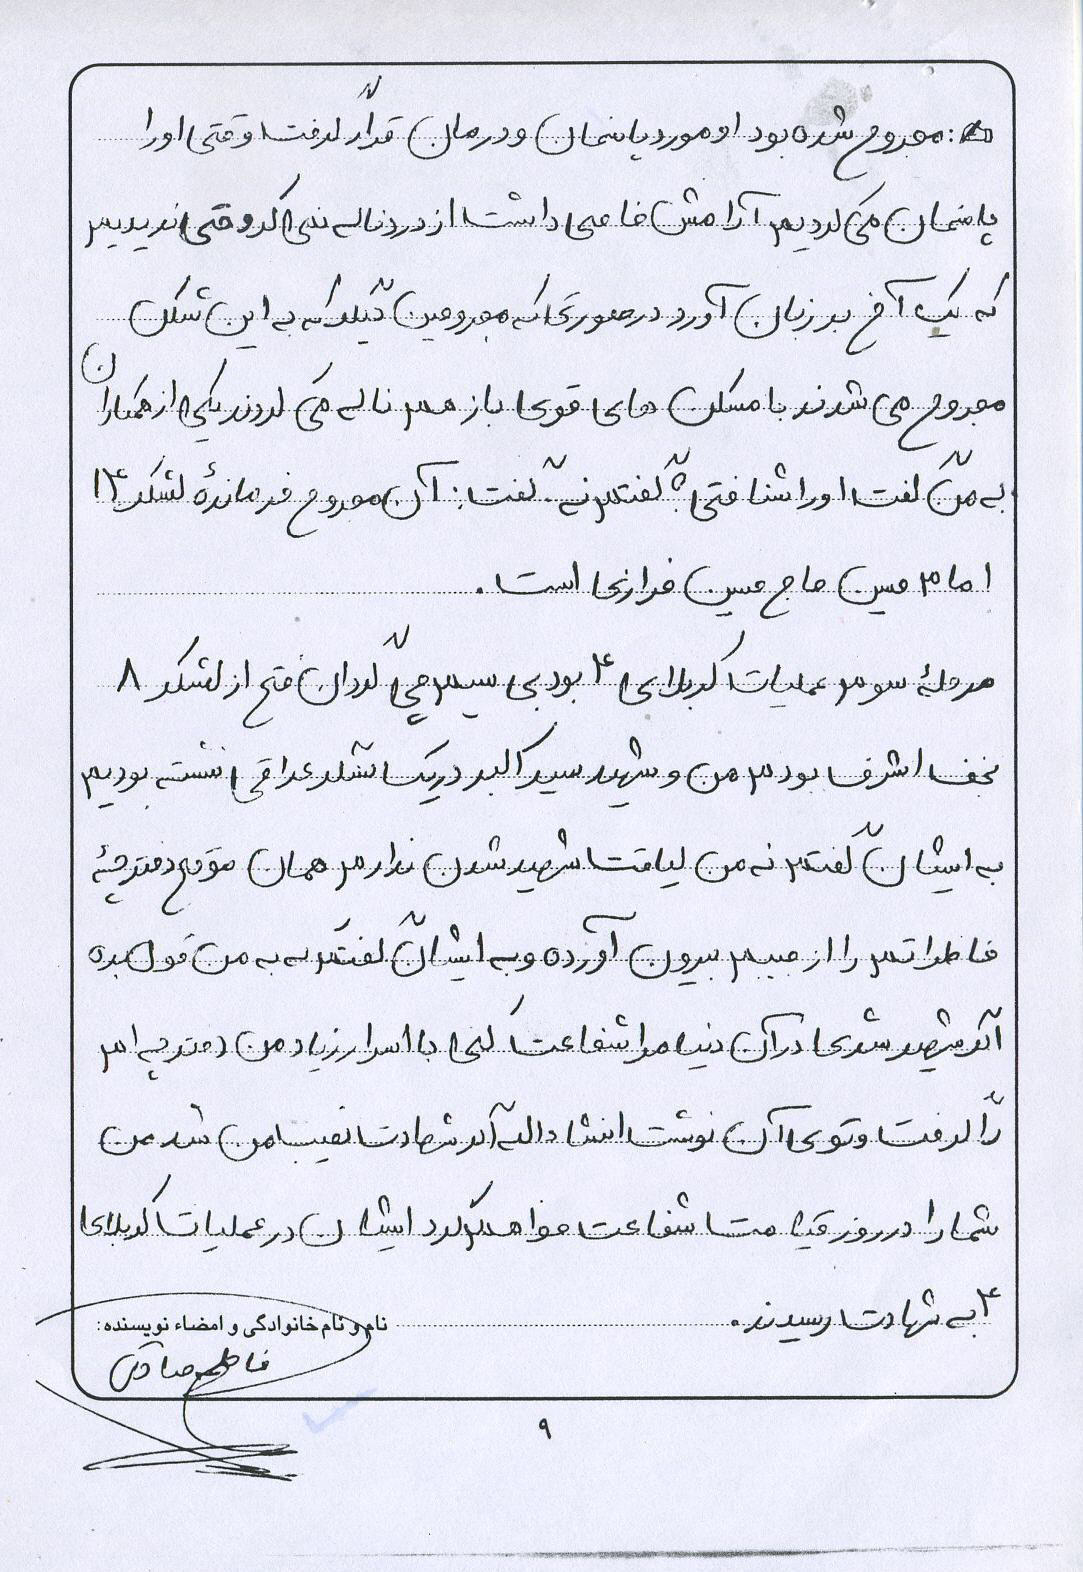 مجروح شده بود او مورد پانسمان و درمان قرار گرفت وقتی او را
پانسمان می کردیم آرامش خاصی داشت از درد ناله نمی کرد وحتی ندیدیم
که یک آخ بر زبان آورد در صورتی که مجروحین دیگر که به این شکل
مجروح می شدند با مسکن های قوی باز هم ناله می کردند یکی از همکاران
به من گفت او را شناختی؟ گفتم نه. گفت: آن مجروح فرماندۀ لشکر ۱۴
امام حسین حاج حسین خرازی است.
مرحلۀ سوم عملیات کربلای ۴ بود بی سیم چی گردان فتح از لشکر ۸
نجف اشرف بودم من و شهید سید اکبر در یک سنگر عراقی نشسته بودیم
به ایشان گفتم نه من لیاقت شهید شدن ندارم همان موقع دفترچۀ
خاطراتم را از جیبم بیرون آورده و به ایشان گفتم به من قول بده
اگر شهید شدی در آن دنیا مرا شفاعت کنی با اسرار زیاد من دفترچه ام
را گرفت و توی آن نوشت انشاءالله اگر شهادت نصیب من شد من
شما را در روز قیامت شفاعت خواهم کرد ایشان در عملیات کربلای
۴ به شهادت رسیدند.
نام و نام خانوادگی و امضاء نویسنده:
فاطمه صادقی
۹